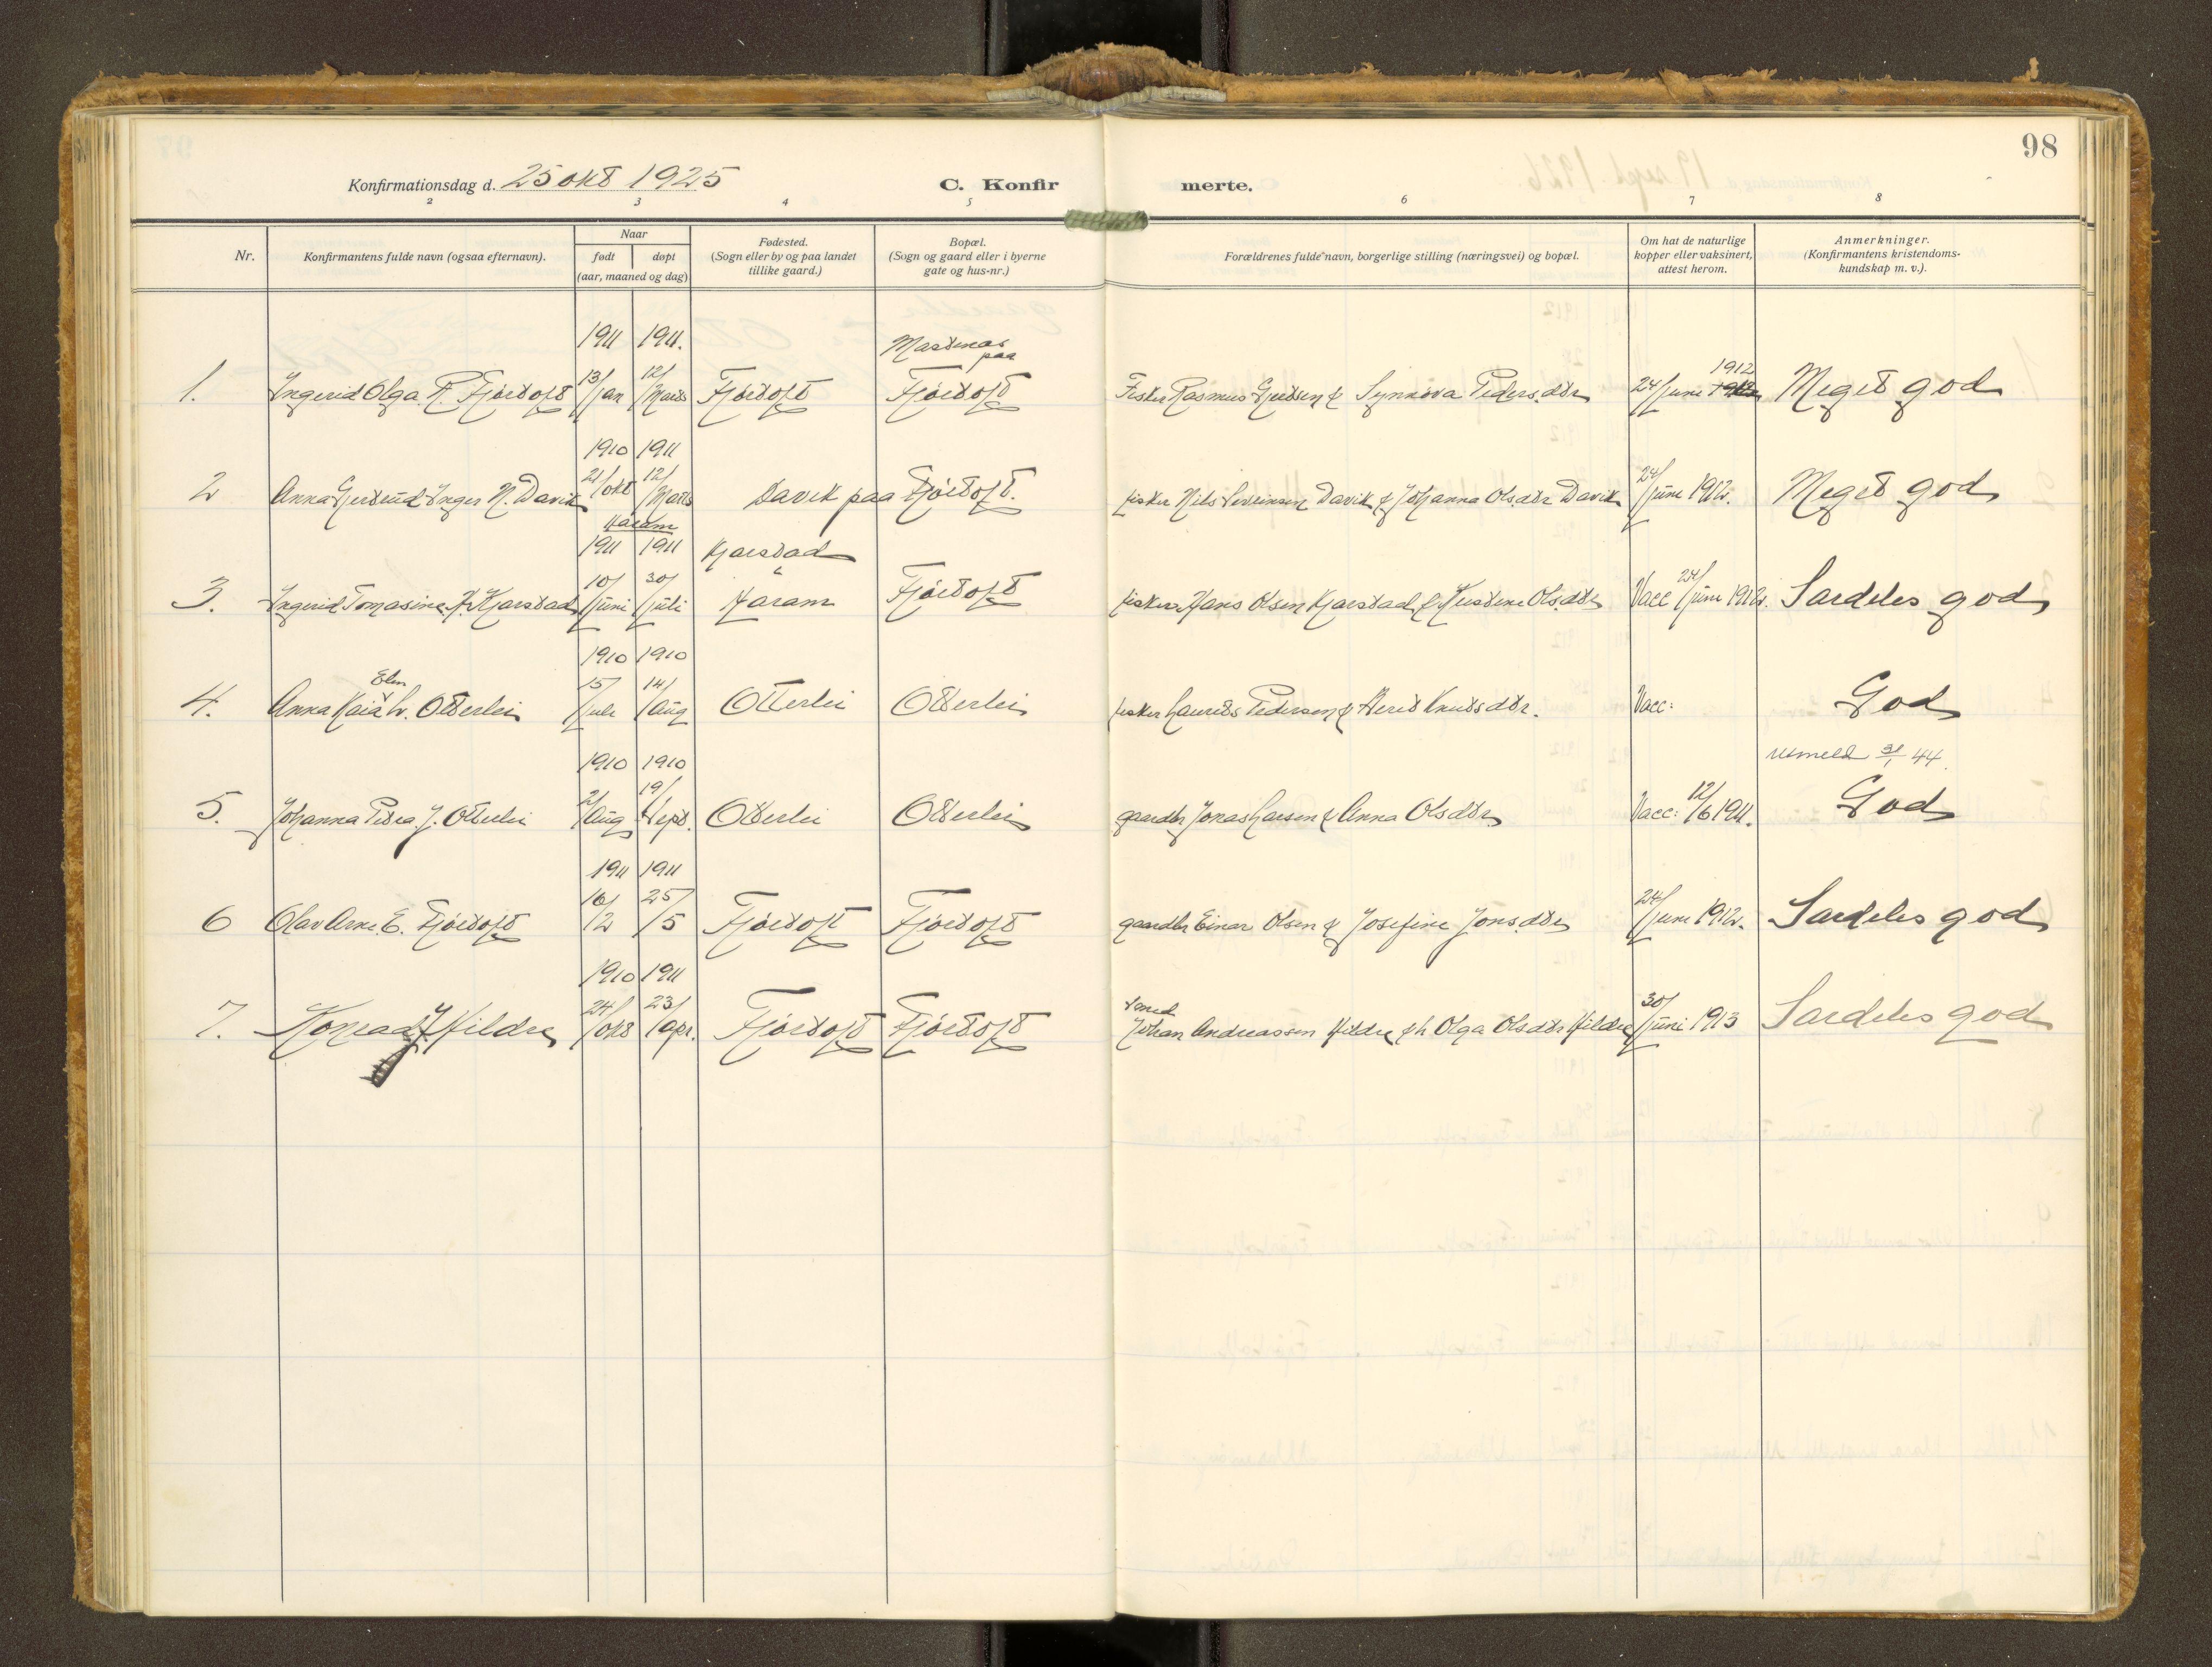 98
Konfirmationsdag d. 25 okt 1925 C. Konfir merte.
2 3 4 5 6 7 8
Nr. Konfirmantens fulde navn (ogsaa efternavn). Naar født døpt (aar, maaned og dag) Fødested. (Sogn eller by og paa landet tillike gaard.) Bopæl. (Sogn og gaard eller i byerne gate og hus-nr.) Forældrenes fulde navn, borgerlige stilling (næringsvei) og bopæl. Om hat de naturlige kopper eller vaksinert, attest herom. Anmerkninger. (Konfirmantens kristendoms-kundskap m. v.).
1911 1911. paa
1. Ingerid Olga R. Fjørtoft 13/jan 12/Marts Fjørtoft Fjørtoft Fisker Rasmus Gjertsen & Synnøva Peders.dtr 24/juni 1912 Meget god
1910 1911
2 Anna Gjertrud Inger N. Davik 21/okt 12/Marts Davik paa Fjørtoft. fisker Nils Severinsen Davik & Johanna Ols.dtr Davik 24/juni 1912. Meget god
Haram
1911 1911 Kjerstad
3. Ingerid Tomasine H. Kjerstad 10/juni 30/juli Haram Fjørtoft fisker Hans Olsen Kjerstad & Kristine Ols.dtr Vacc 24/juni 1912. Særdeles god
1910 1910
Elen
4. Anna Kaia L. Otterlei 15/juli 14/aug Otterlei Otterlei fisker Laurits Pedersen & Berit Knutsdtr. Vacc: God
1910 1910 utmeld 31/1 44.
5. Johanna Petra J. Otterlei 2/Aug 19/Sept. Otterlei Otterlei gaardbr Jonas Larsen & Anna Olsdtr Vacc: 12/6 1911. God
1911 1911
6 Olav Arne E. Fjørtoft 16/2 25/5 Fjørtoft Fjørtoft gaardbr Einar Olsen & Josefine Jons.dtr 24/juni 1912. Særdeles god
1910 1911
7. Konrad J Hildre 24/okt 23/apr. Fjørtoft Fjørtoft smed Johan Andreassen Hildre & h Olga Olsdtr Hildre 30/juni 1913 Særdeles god